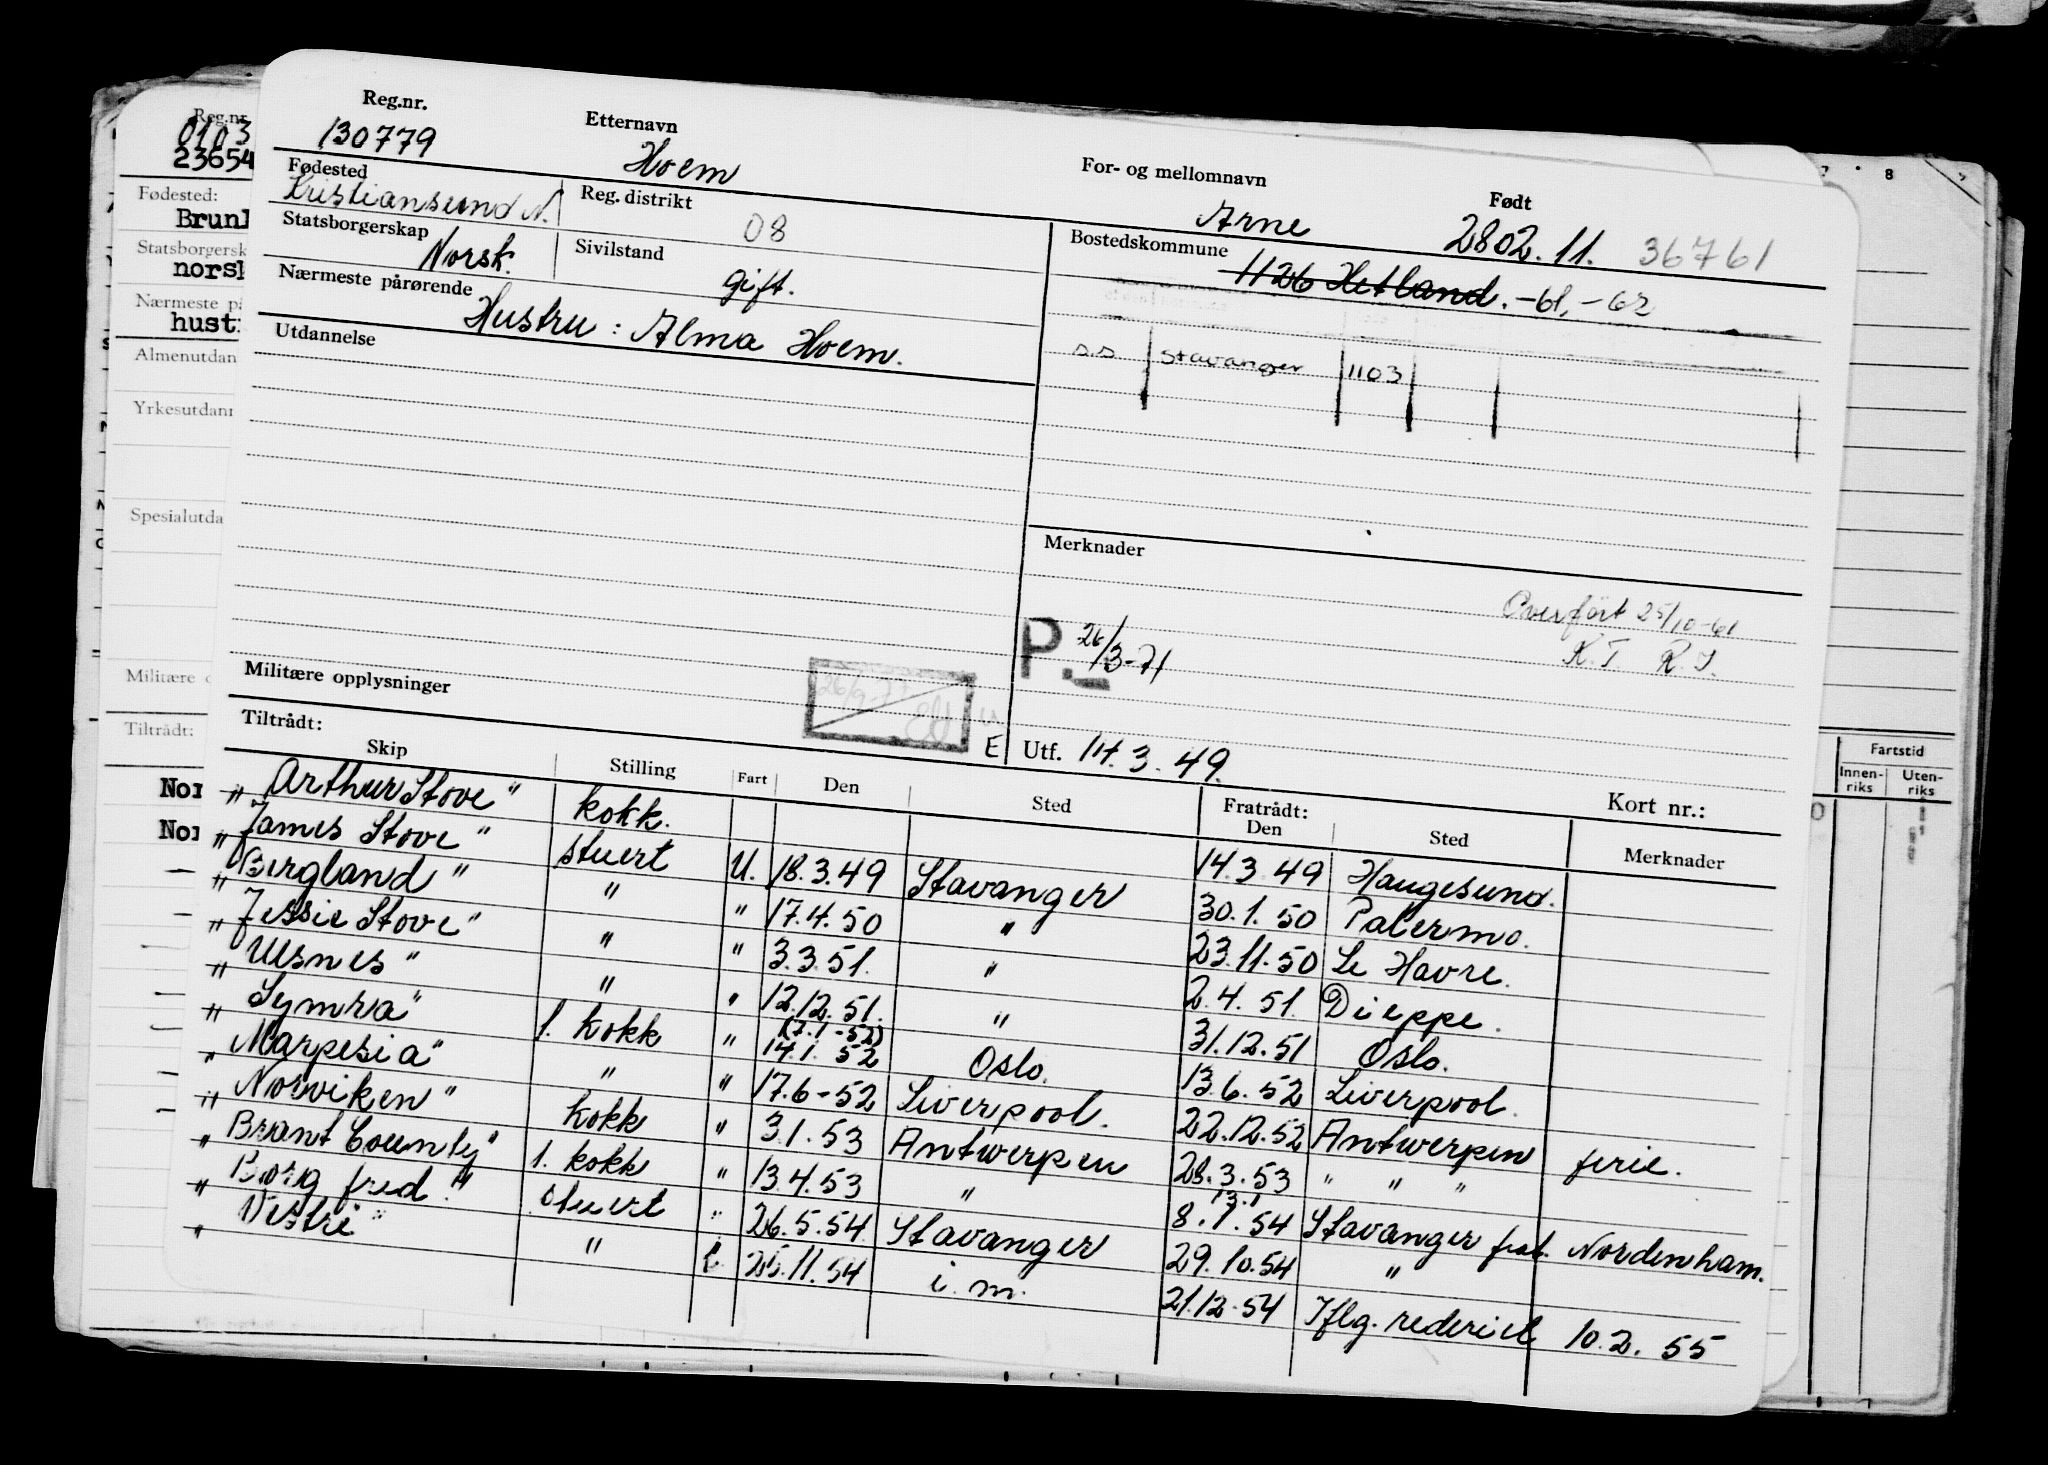 Reg.nr. Etternavn For- og mellomnavn Født
130779 Hoem Arne 2802.11. 36761
Fødested Reg. distrikt Bostedskommune
Kristiansund N. 08 1126 Hetland. -61, -62
Statsborgerskap Sivilstand
Norsk. gift.
s.s Stavanger 1103
Nærmeste pårørende
Hustru: Alma Hoem.
Utdannelse
Merknader
Overført 25/10-61
K.T R.J.
P. 26/3-71
Militære opplysninger
26/9-77
E Utf. 14.3.49.
Tiltrådt: Fratrådt: Kort nr.:
Skip Stilling Fart Den Sted Den Sted Merknader
" Arthur Stove" kokk. 14.3.49 Haugesund.
" James Stove" stuert U. 18.3.49 Stavanger 30.1.50 Palermo.
" Bergland" " " 17.4.50 " 23.11.50 Le Havre.
" Jessie Stove" " " 3.3.51. " 2.4.51. Dieppe.
" Ulsnes" " " 12.12.51. " 31.12.51 Oslo.
" Symra" 1. kokk " (7.1-52) 14.1.52 Oslo. 13.6.52 Liverpool.
" Marpesia" " " 17.6-52 Liverpool. 22.12.52 Antwerpen ferie.
" Norviken" kokk " 3.1.53 Antwerpen 28.3.53 " " "
" Brant County" 1. kokk " 13.4.53 " 13.1 8.1.54 Stavanger frat. Nordenham.
" Borgfred." stuert " 26.5.54 Stavanger 29.10.54 "
" Vestri" " i. 25.11.54 i.m. 21.12.54 Iflg. rederiet 10.2.55
Reg.nr
0103
23654
Fødested:
Brunl
Statsborgersk
norsk
Nærmeste på
hust
Almenutdan
Yrkesutdann
Spesialutda
Militære o
Tiltrådt:
Nor
Nor
8
Fartstid
Innen-riks Uten-riks